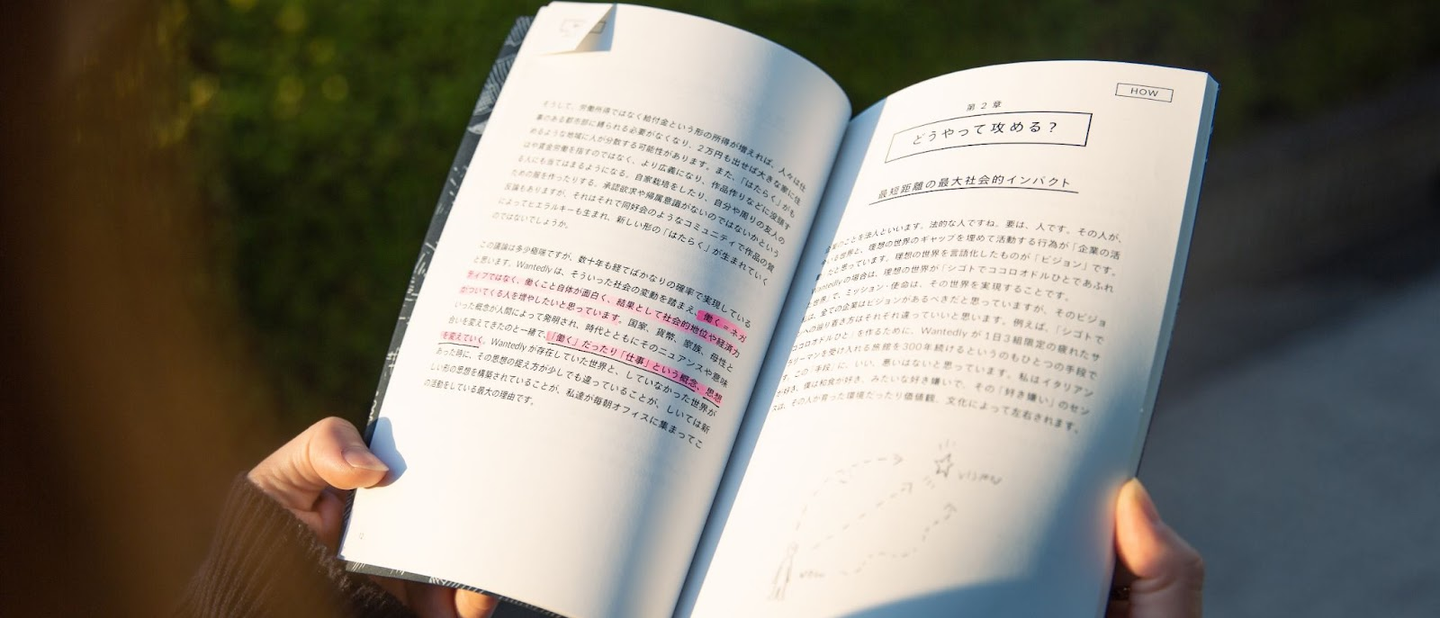 そうして、労働所得ではなく給付金という形の所得が増えれば、人々は仕
事のある都市部に縛られる必要がなくなり、2万円も出せば大きな家に住
めるような地域に人が分散する可能性があります。また、「はたらく」がも
はや賃金労働を指すのではなく、より広義になり、作品作りなどに没頭す
る人にも当てはまるようになる。自家栽培をしたり、自分や周りの友人の
ための服を作ったりする。承認欲求や帰属意識がないのではないかという
反論もありますが、それはそれで同好会のようなコミュニティで作品の質
によってヒエラルキーも生まれ、新しい形の「はたらく」が生まれていく
のではないでしょうか。
この議論は多少極端ですが、数十年も経てばかなりの確率で実現している
と思います。Wantedlyは、そういった社会の変動を踏まえ、働く＝ネガ
ティブではなく、働くこと自体が面白く、結果として社会的地位や経済力
がついてくる人を増やしたいと思っています。国家、貨幣、家族、母性と
いった概念が人間によって発明され、時代とともにそのニュアンスや意味
合いを変えてきたのと一緒で、「働く」だったり「仕事」という概念、思想
も変えていく。Wantedlyが存在していた世界と、していなかった世界が
あった時に、その思想の捉え方が少しでも違っていることが、しいては新
しい形の思想を構築されていることが、私達が毎朝オフィスに集まってこ
の活動をしている最大の理由です。
HOW
第2章
どうやって攻める？
最短距離の最大社会的インパクト
のことを法人といいます。法的な人ですね。要は、人です。その人が、
いる世界と、理想の世界のギャップを埋めて活動する行為が「企業の活
だと思っています。理想の世界を言語化したものが「ビジョン」です。
Wantedlyの場合は、理想の世界が「シゴトでココロオドルひとであふれ
世界」で、ミッション・使命は、その世界を実現することです。
は、全ての企業はビジョンがあるべきだと思っていますが、そのビジョ
への辿り着き方はそれぞれ違っていいと思います。例えば、「シゴトで
ココロオドルひと」を作るために、Wantedlyが1日3組限定の疲れたサ
リーマンを受け入れる旅館を300年続けるというのもひとつの手段で
す。この「手段」に、いい、悪いはないと思っています。私はイタリアン
が好き、僕は和食が好き、みたいな好き嫌いで、その「好き嫌い」のセン
スは、その人が育った環境だったり価値観、文化によって左右されます。
VISION
NOW